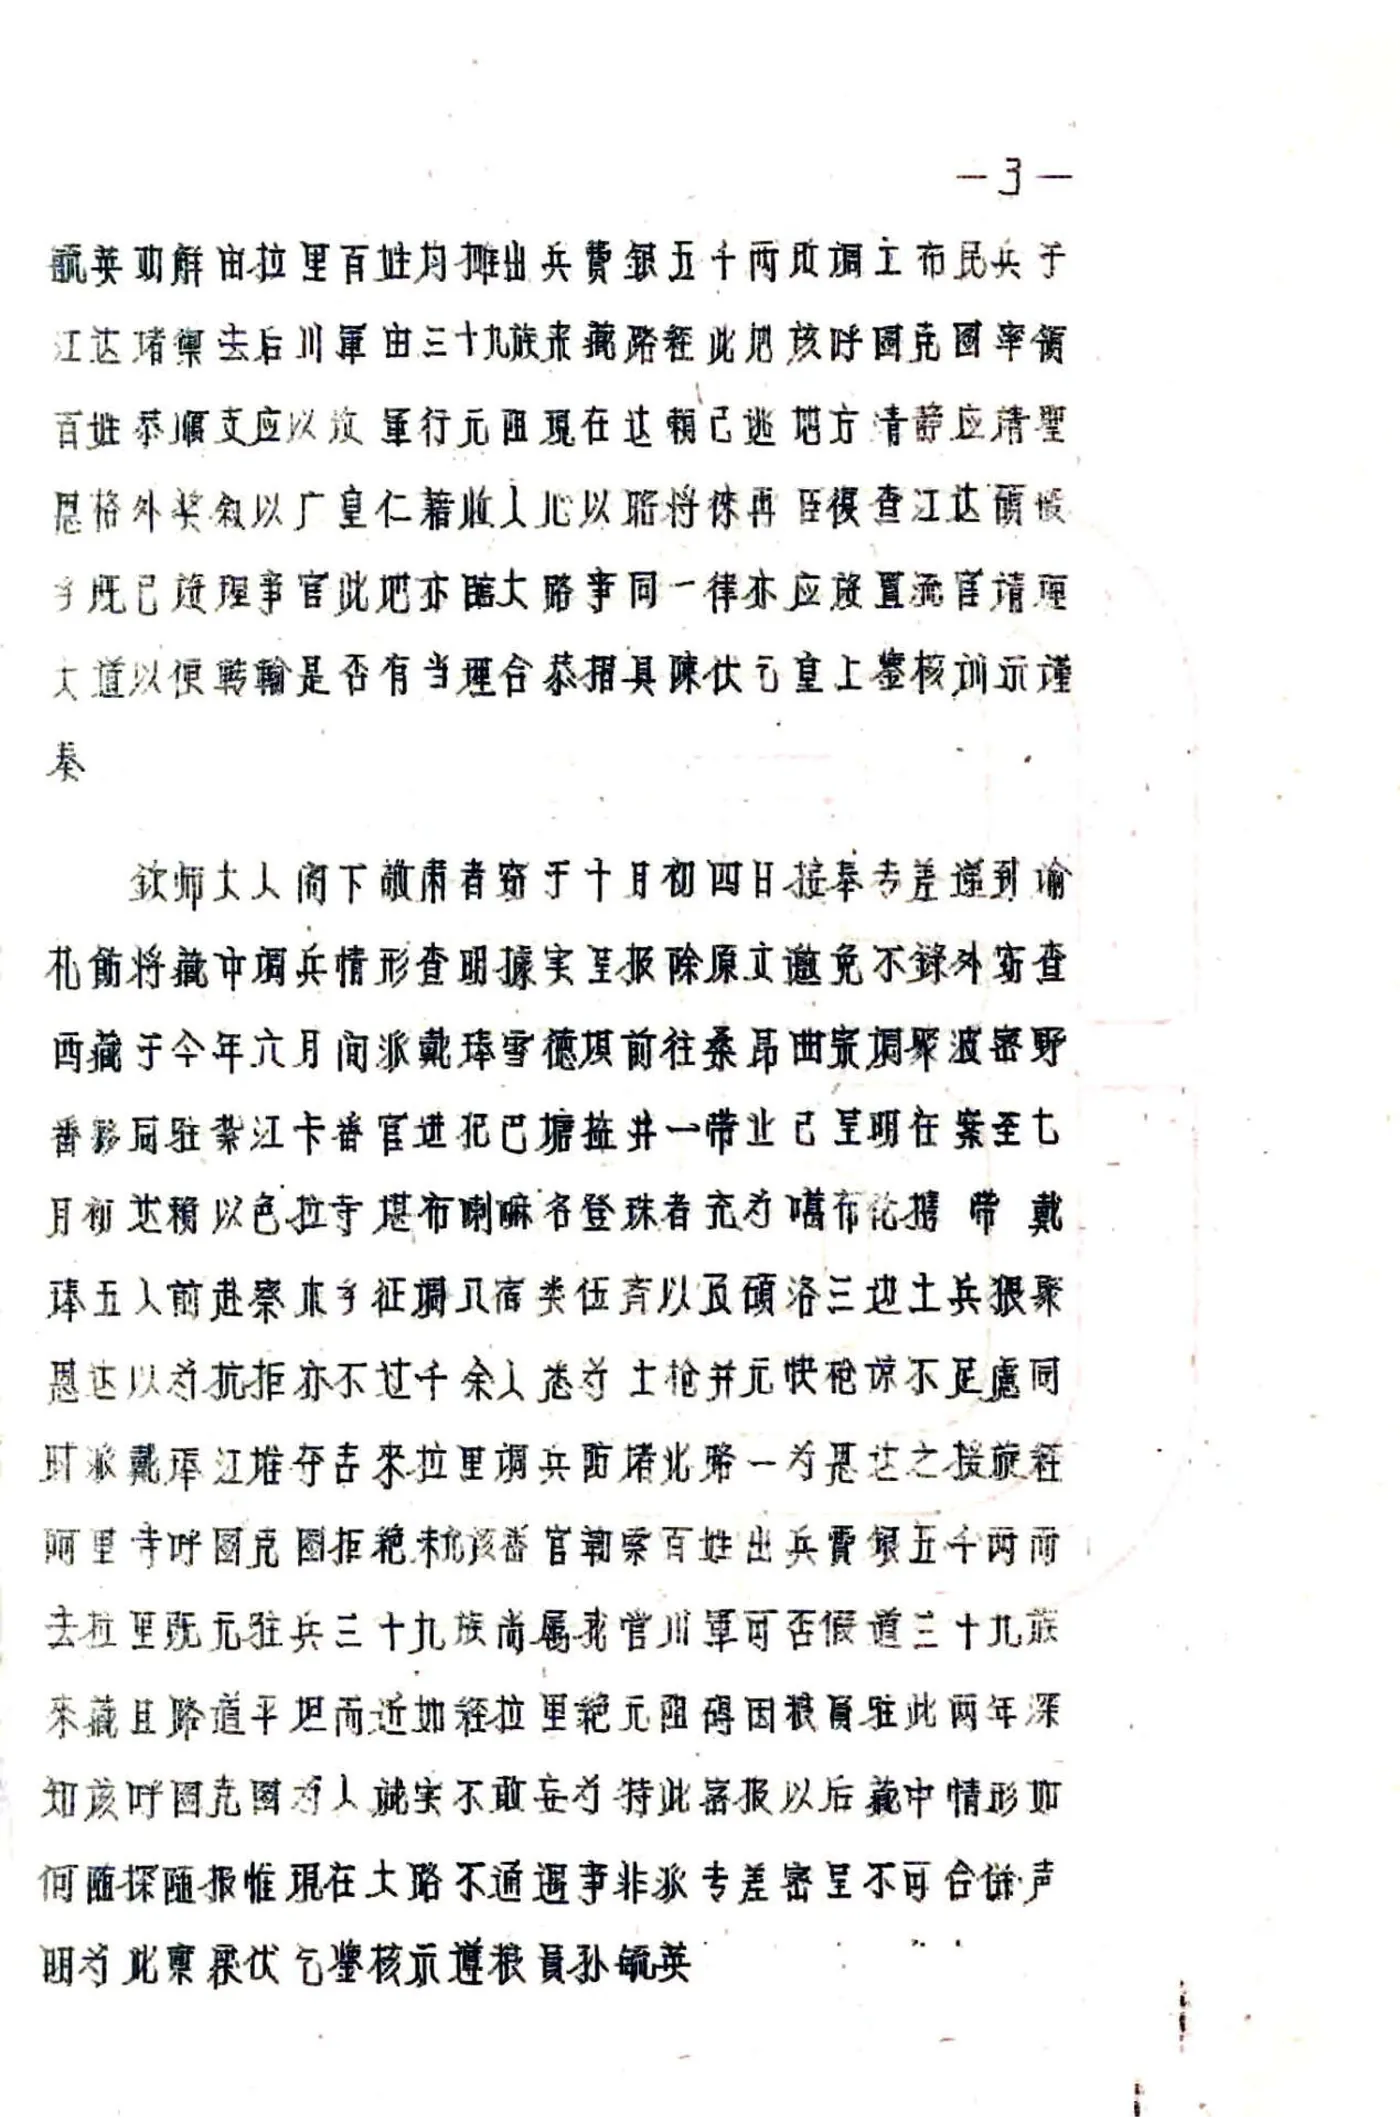 —3—
毓英劝解由拉里百姓均摊出兵費银五千两改调工布民兵于
江达堵禦去后川軍由三十九族来藏路經此地该呼圖克圖率領
百姓恭順支应以故軍行无阻現在达賴已逃地方清静应請聖
恩格外奖叙以广皇仁藉收人心以昭将徕再臣復查江达硕般
多既已设理事官此地亦臨大路事同一律亦应设置流官请理
大道以便转輸是否有当理合恭摺具陳伏乞皇上鑒核训示谨
奏
欽师大人阁下敬肃者窃于十月初四日接奉专差递到谕
札飭将藏中调兵情形查明據实呈报除原文邀免不錄外窃查
西藏于今年六月间派戴琫雪德坝前往桑昂曲宗调聚波密野
番夥同驻紮江卡番官进犯巴塘盐井一带业已呈明在案至七
月初达賴以色拉寺堪布喇嘛名登珠者充为噶布伦携带戴
琫五人前赴察木多征调八宿类伍齐以及碩洛三边土兵猥聚
恩达以为抗拒亦不过千余人悉为土枪并无快砲谅不足慮同
时派戴琫江堆夺吉来拉里调兵防堵此路一为恩达之援旋經
阿里寺呼圖克圖拒絶未允该番官勒索百姓出兵費银五千两而
去拉里既无驻兵三十九族尚屬我管川軍可否假道三十九族
来藏且路道平坦而近如經拉里絶无阻碍因粮員驻此两年深
知该呼圖克圖为人誠实不敢妄为特此密报以后藏中情形如
何隨探隨报惟現在大路不通遇事非派专差密呈不可合併声
明为此稟懇伏乞鑒核示遵粮員孙毓英